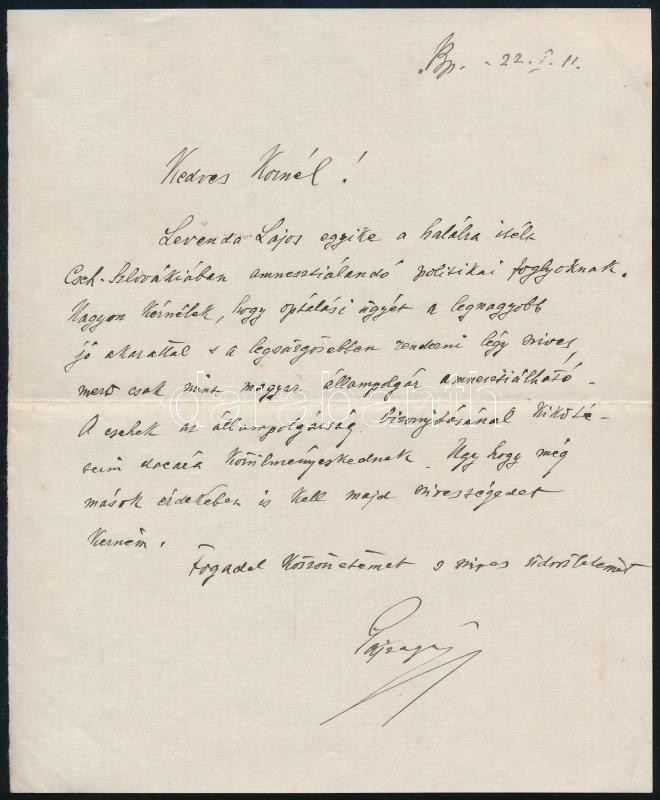 Bp. - 22. I. 11.
Kedves Kornél !
Levenda Lajos egyike a halálra itélt
Cseh-Szlovákiában amnesztiálandó politikai foglyoknak.
Nagyon kérnélek, hogy optálási ügyét a legnagyobb
jó akarattal s a legsürgősebben rendezni légy szives,
mert csak mint magyar állampolgár amnesztiálható.
A csehek az állampolgárság bizonyitásánál kiköté-
seim dacára körülményeskednek. Ugy hogy még
mások érdekében is kell majd szivességedet
kérnem.
Fogadd köszönetemet s szives üdvözletemet
Gajzágó
darabanth